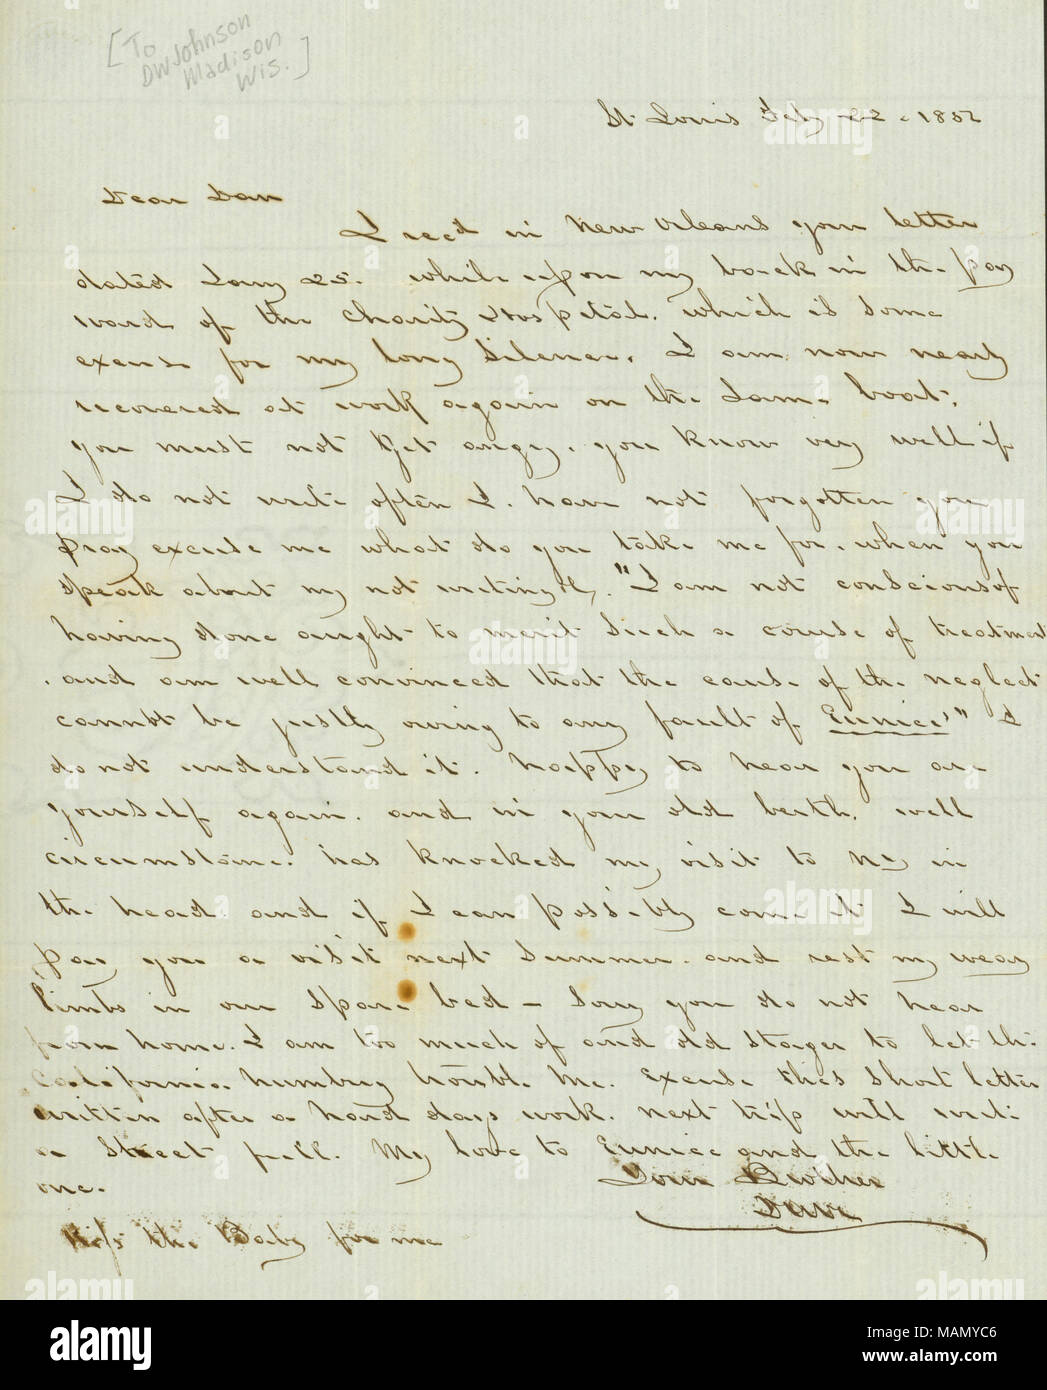 [To
DW Johnson
Madison
Wis.]
St Louis Feby 22. 1852
Dear Dan
I recd in New Orleans your letter
dated Jany 25. while upon my back in the pay
ward of the Charity Hospital. which is some
excuse for my long silence. I am now nearly
recovered at work again on the same boat.
you must not get angry. you know very well if
I do not write often I. have not forgotten you
pray excuse me what do you take me for. when you
speak about my not writing &. "I am not conscious of
having done aught to merit such a course of treatment
. and am well convinced that the cause of the neglect
cannot be justly owing to any fault of Eunice'" I
do not understand it. happy to hear you are
yourself again. and in your old berth. well
circumstance. has knocked my visit to NY in
the head. and if I can possibly come it I will
pay you a visit next summer. and rest my weary
limbs in our spare bed - Sory you do not hear
from home. I am too much of and old stager to let the
California humbug trouble me. Excuse this short letter
written after a hard days work. next trip will write
a sheet full. My love to Eunice and the little
one.
Your Brother
Dave
Kiss the Baby for me
a alamy stock photo
alamy
MAMYC6
www.alamy.com